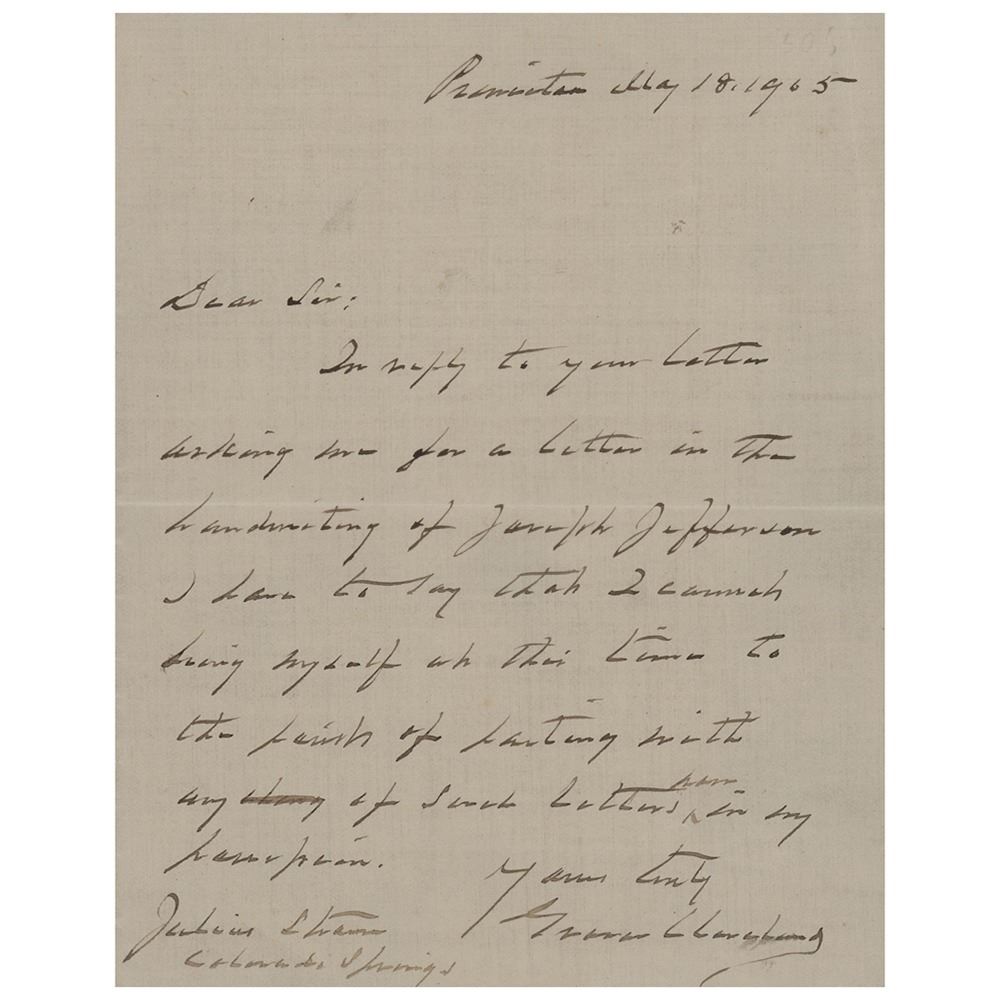 Princeton May 18. 1905
Dear Sir:
In reply to your letter
asking me for a letter in the
handwriting of Joseph Jefferson
I have to say that I cannot
bring myself at this time to
the point of parting with
any thing of such letters now in my
possession.
Yours truly
Grover Cleveland
Julius
Colorado Springs